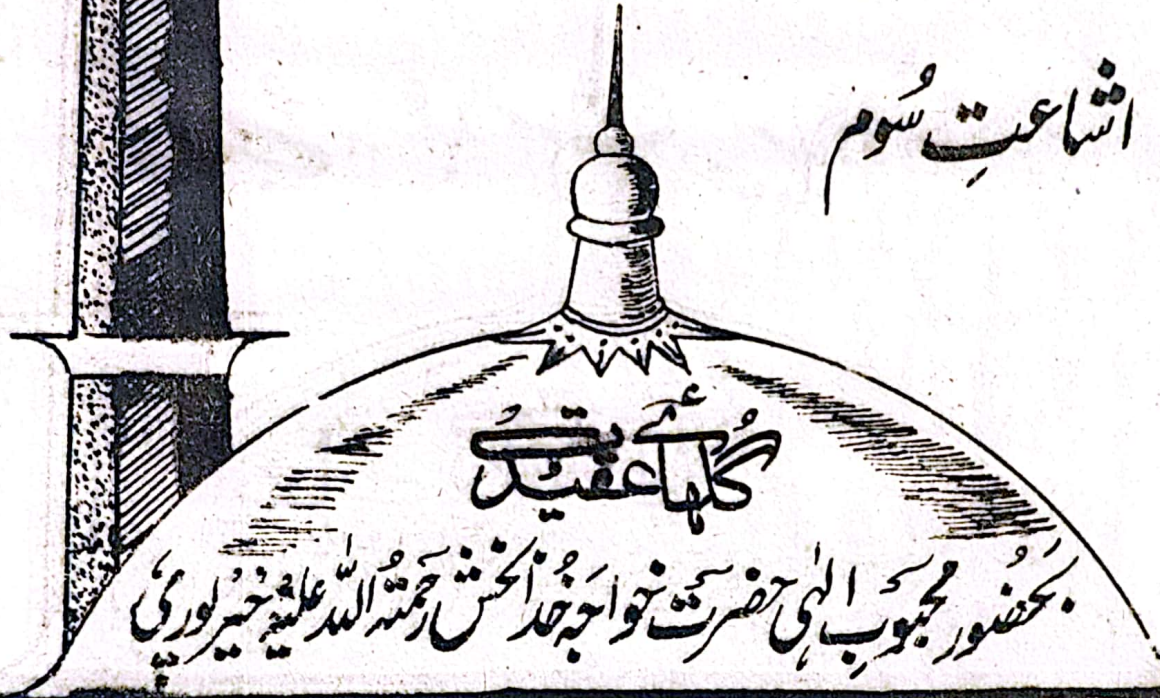 اشاعتِ سُوم
گلہائے عقیدت
بحضُور محبوبِ الٰہی حضرت خواجہ خُدا بخش رَحمتہُ اللہ علیہ خیرپوری